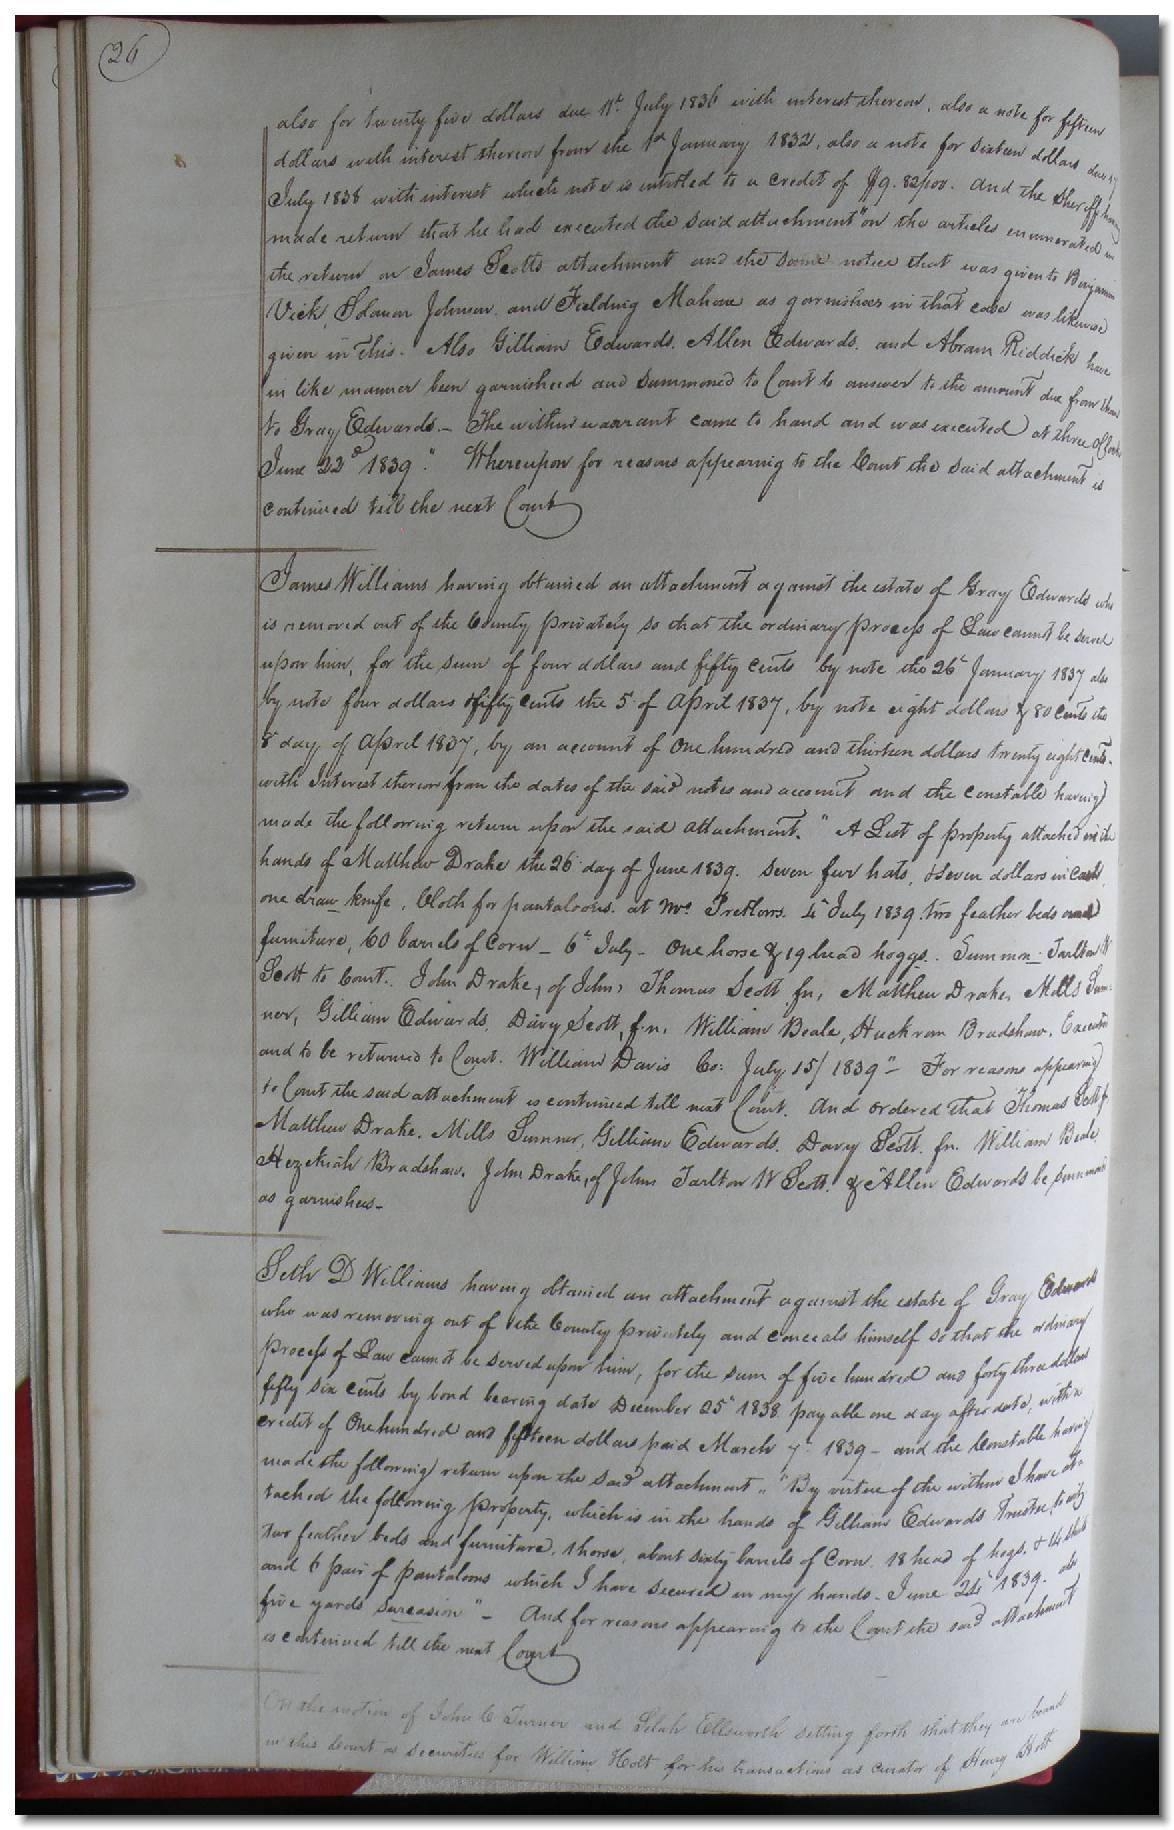 26
also for twenty five dollars due 11t. July 1836 with interest thereon, also a note for fifteen
dollars with interest thereon from the 1st January 1832, also a note for sixteen dollars due
July 1838 with interest which note is intitled to a credit of $9.82/100. And the Sheriff having
made return that he had executed the said attachment "on the articles enumerated in
the return on James Scotts attachment and the same notice that was given to Benjamin
Vick, Solomon Johnson and Fielding Mahone as garnishees in that case was likewise
given in this. Also Gilliam Edwards, Allen Edwards, and Abram Riddick have
in like manner been garnisheed and summoned to Court to answer to the amount due from them
to Gray Edwards.— The within warrant came to hand and was executed at three OClock
June 22d 1839." Whereupon for reasons appearing to the Court the said attachment is
continued till the next Court
James Williams having obtained an attachment against the estate of Gray Edwards who
is removed out of the County privately so that the ordinary process of Law cannot be served
upon him, for the sum of four dollars and fifty cents by note the 26t January 1837 also
by note four dollars & fifty cents the 5t of April 1837, by note eight dollars & 80 Cents the
8t day of April 1837, by an account of One hundred and thirteen dollars twenty eight cents.
with Interest thereon from the dates of the said notes and account and the constable having
made the following return upon the said attachment. "A List of property attached in the
hands of Matthew Drake the 26t day of June 1839. Seven fur hats, & Seven dollars in Cash,
one draw knife, Cloth for pantaloons. at Mrs. Pretlows. 4t July 1839 two feather beds and
furniture, 60 barrels of Corn — 6t July — One horse & 19 head hoggs. Summon Tarlton W
Scott to Court. John Drake, of John, Thomas Scott jn, Matthew Drake, Mills Sum-
ner, Gilliam Edwards, Davy Scott, jn. William Beale, Huckram Bradshaw. Executed
and to be returned to Court. William Davis Co: July 15/ 1839"— For reasons appearing
to Court the said attachment is continued till next Court. And ordered that Thomas Scott jr
Matthew Drake. Mills Sumner, Gilliam Edwards. Davy Scott. jn. William Beale,
Hezekiah Bradshaw. John Drake, of John Tarlton W Scott. & Allen Edwards be summoned
as garnishees—
Seth D Williams having obtained an attachment against the estate of Gray Edwards
who was removing out of the County privately and conceals himself so that the ordinary
process of Law cannot be served upon him, for the sum of five hundred and forty three dollars
fifty six cents by bond bearing date December 25t 1838 payable one day after date, with a
credit of One hundred and fifteen dollars paid March 7t 1839 — and the Constable having
made the following return upon the said attachment.. "By virtue of the within I have at-
tached the following property, which is in the hands of Gilliam Edwards Trustee, to wit,
two feather beds and furniture, 1 horse, about sixty barrels of Corn. 18 head of hogs. & 14
and 6 pair of pantaloons which I have secured in my hands. June 24t 1839. also
five yards "— And for reasons appearing to the Court the said attachment
is continued till the next Court
On the motion of John C Turner and Selah Ellsworth setting forth that they are bound
in this Court as securities for William Holt for his transactions as curator of Henry Holt